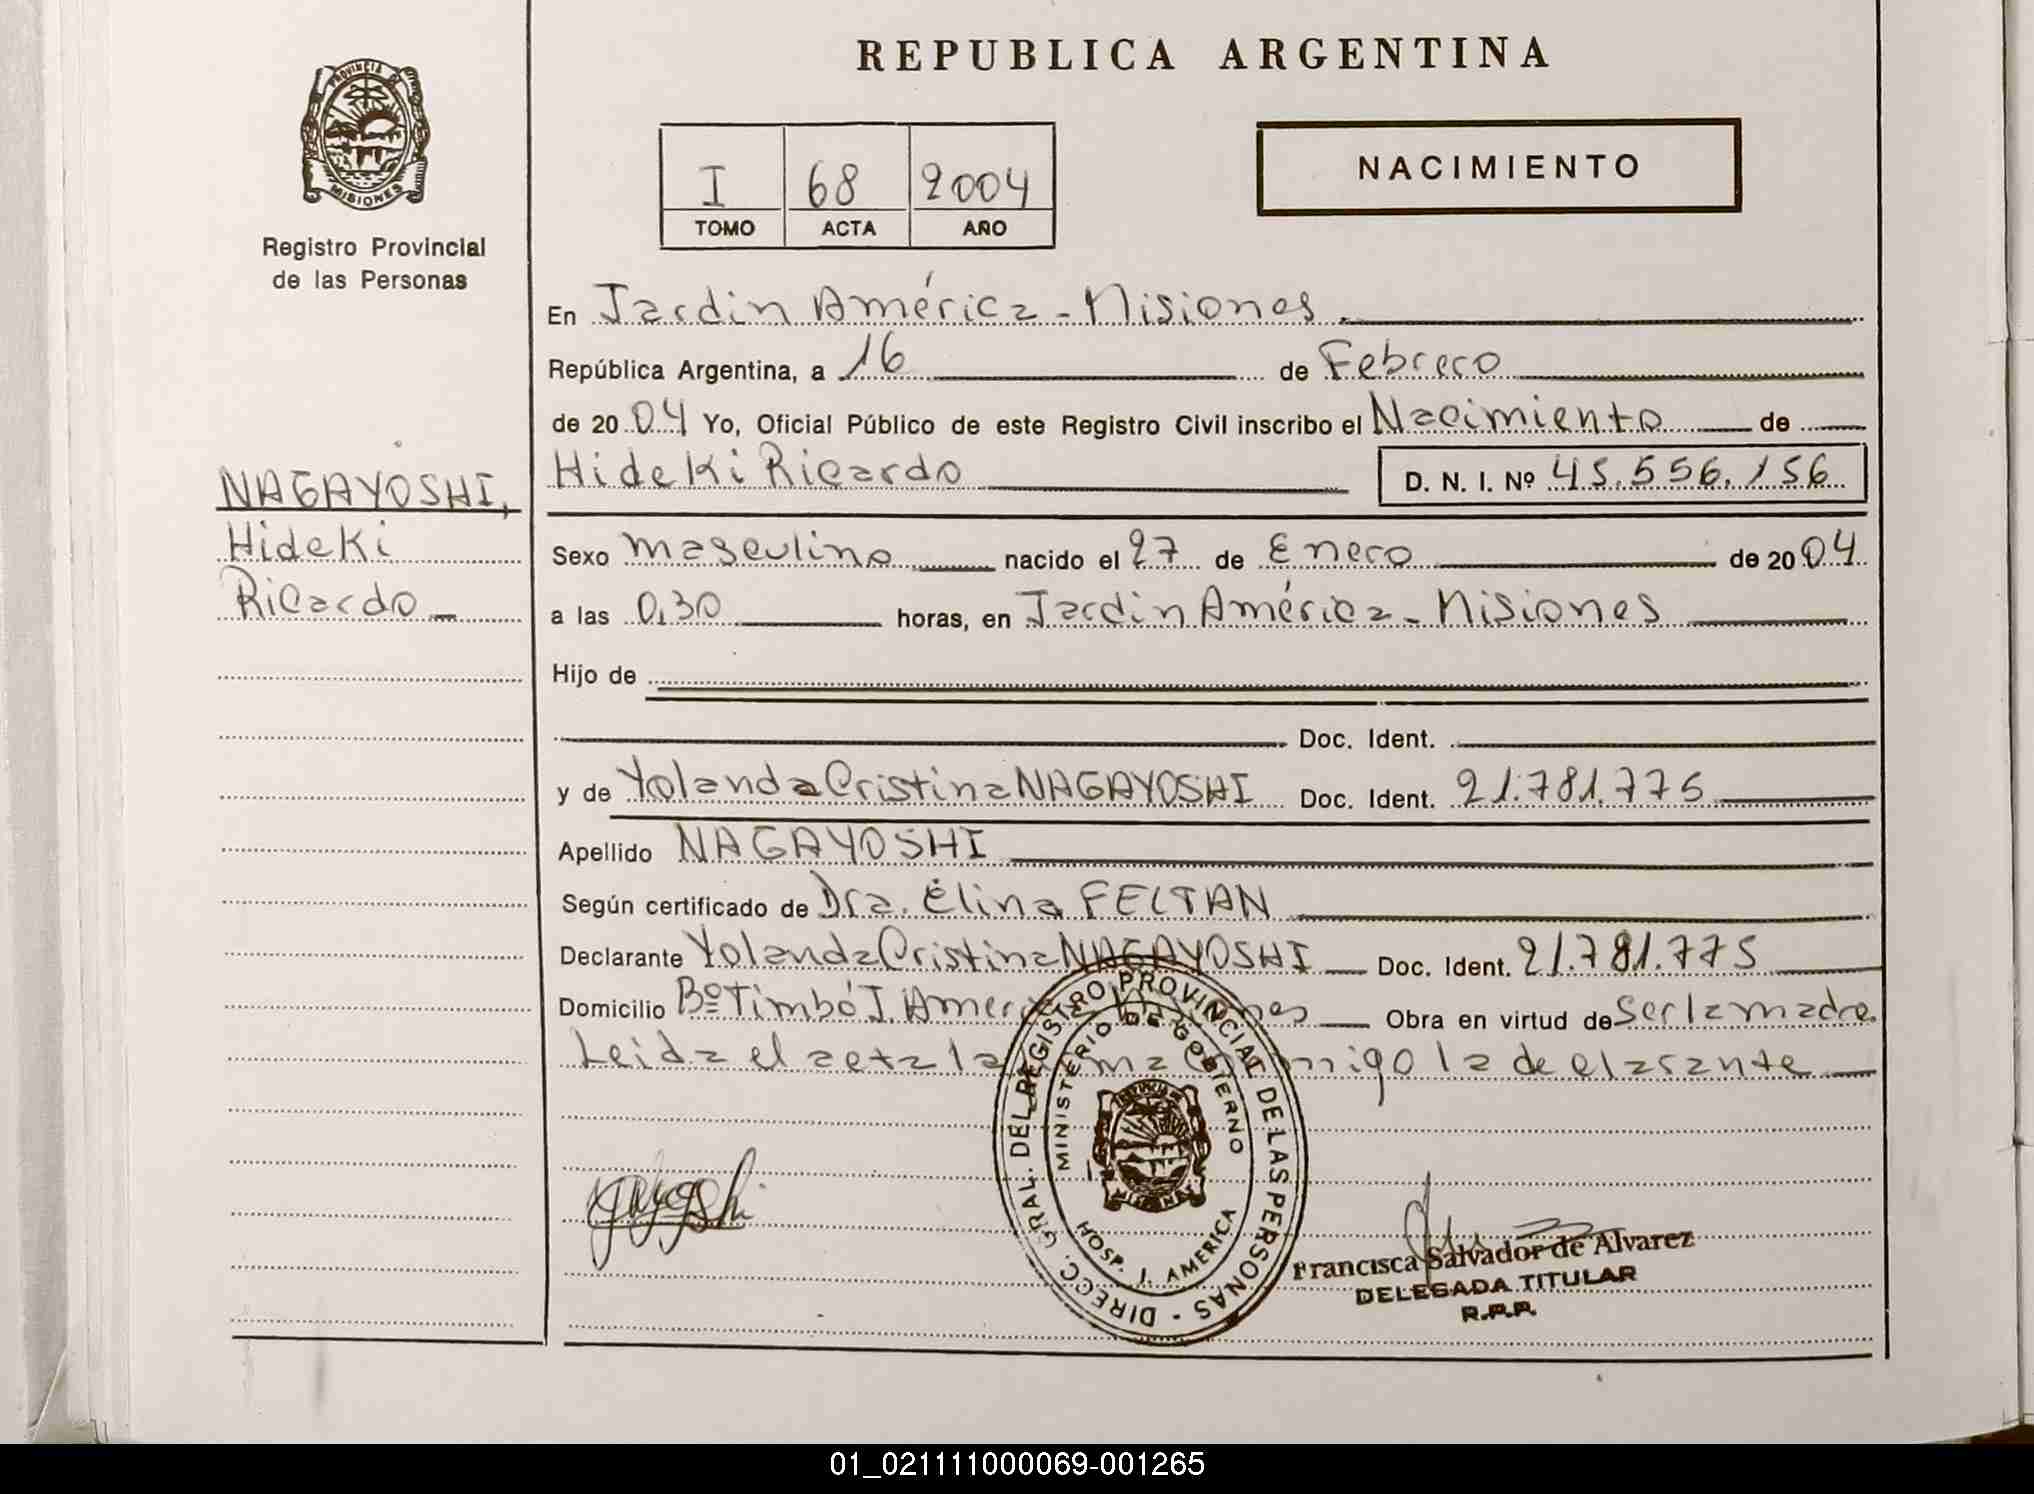 REPUBLICA ARGENTINA
PROVINCIA DE
MISIONES
Registro Provincial
de las Personas
I 68 2004
TOMO ACTA AÑO
NACIMIENTO
En Jardin América - Misiones.
República Argentina, a 16 de Febrero
de 2004 Yo, Oficial Público de este Registro Civil inscribo el Nacimiento de
Hideki Ricardo D. N. I. Nº 45.556.156
NAGAYOSHI,
Hideki
Ricardo
Sexo masculino nacido el 27 de Enero de 2004
a las 0,30 horas, en Jardin América - Misiones
Hijo de
Doc. Ident.
y de Yolanda Cristina NAGAYOSHI Doc. Ident. 21.781.775
Apellido NAGAYOSHI
Según certificado de Dra. Elina FELTAN
Declarante Yolanda Cristina NAGAYOSHI Doc. Ident. 21.781.775
Domicilio Bº Timbó J. America Misiones Obra en virtud de ser la madre.
Leida el acta la firma conmigo la declarante
DIRECC. GRAL. DEL REGISTRO PROVINCIAL DE LAS PERSONAS -
MINISTERIO DE GOBIERNO
HOSP. J. AMERICA
Francisca Salvador de Alvarez
DELEGADA TITULAR
R.P.P.
01_021111000069-001265